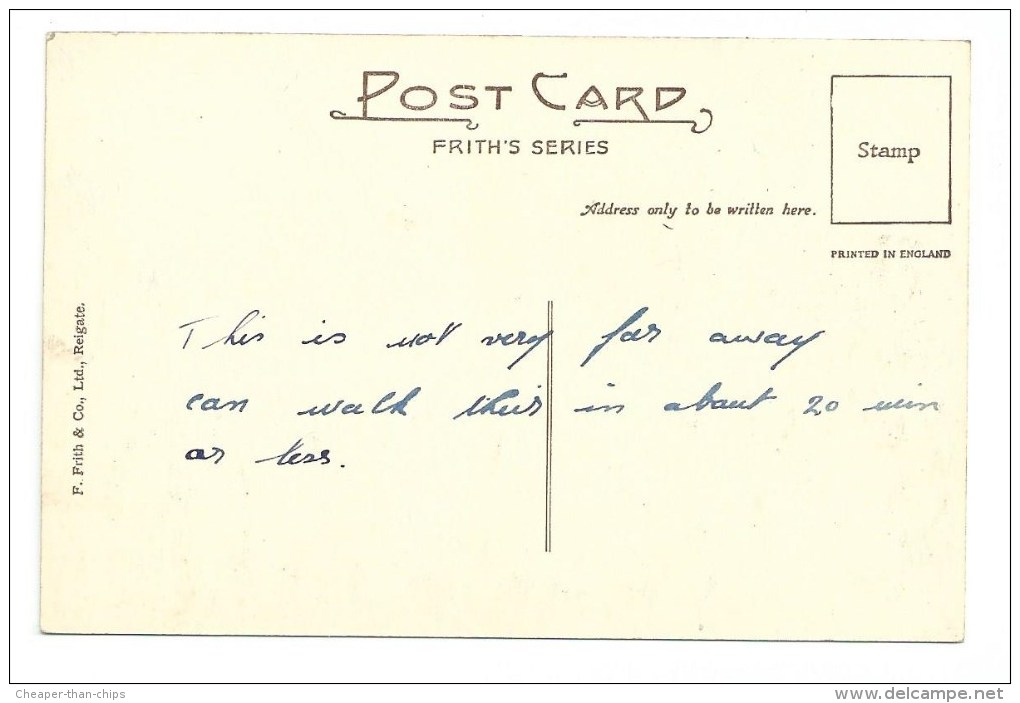 POST CARD
FRITH'S SERIES
Stamp
Address only to be written here.
PRINTED IN ENGLAND
F. Frith & Co., Ltd., Reigate.
This is not very far away
can walk this in about 20 min
or less.
Cheaper-than-chips
www.delcampe.net